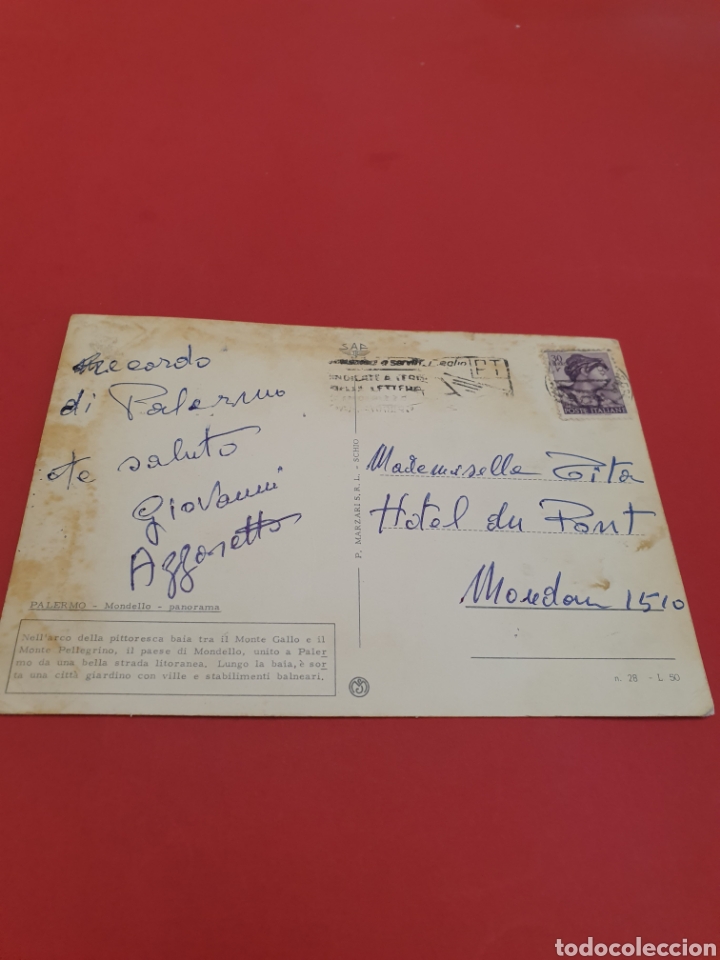 Riccordo
di Palermo
te saluto
Giovanni
Azzoretto
PALERMO - Mondello - panorama
Nell'arco della pittoresca baia tra il Monte Gallo e il
Monte Pellegrino, il paese di Mondello, unito a Paler
mo da una bella strada litoranea. Lungo la baia, è sor
ta una città giardino con ville e stabilimenti balneari.
P. MARZARI S.R.L. - SCHIO
INDICATE
PT
POSTE ITALIANE
Mademeselle Tita
Hotel du Pont
Moudon 1510
n. 28 - L 50
todocoleccion